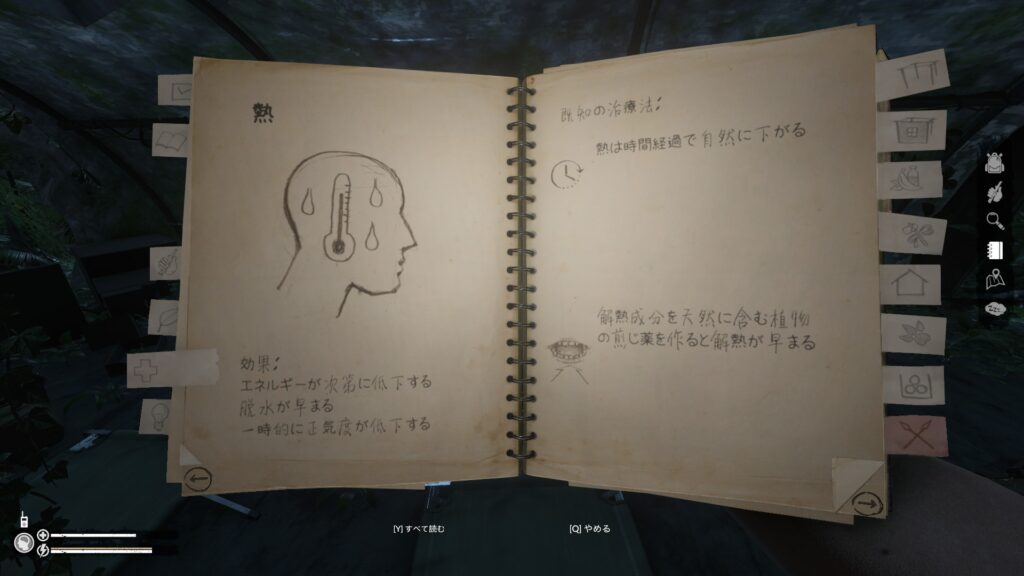 熱
効果:
エネルギーが次第に低下する
脱水が早まる
一時的に正気度が低下する
既知の治療法:
熱は時間経過で自然に下がる
解熱成分を天然に含む植物
の煎じ薬を作ると解熱が早まる
[Y] すべて読む
[Q] やめる